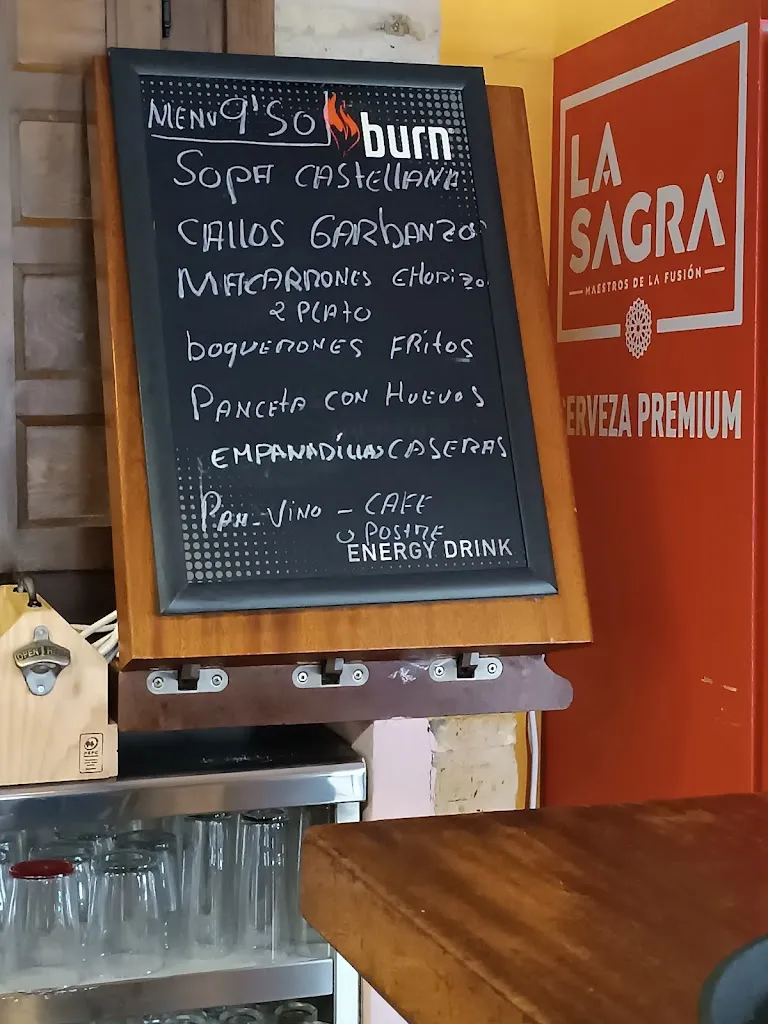 MENU 9'50
burn
SOPA CASTELLANA
CALLOS GARBANZOS
MACARRONES CHORIZO
2 PLATO
BOQUERONES FRITOS
PANCETA CON HUEVOS
EMPANADILLAS CASERAS
PAN - VINO - CAFE
O POSTRE
ENERGY DRINK
LA
SAGRA®
MAESTROS DE LA FUSIÓN
CERVEZA PREMIUM
OPEN HERE
PEFC